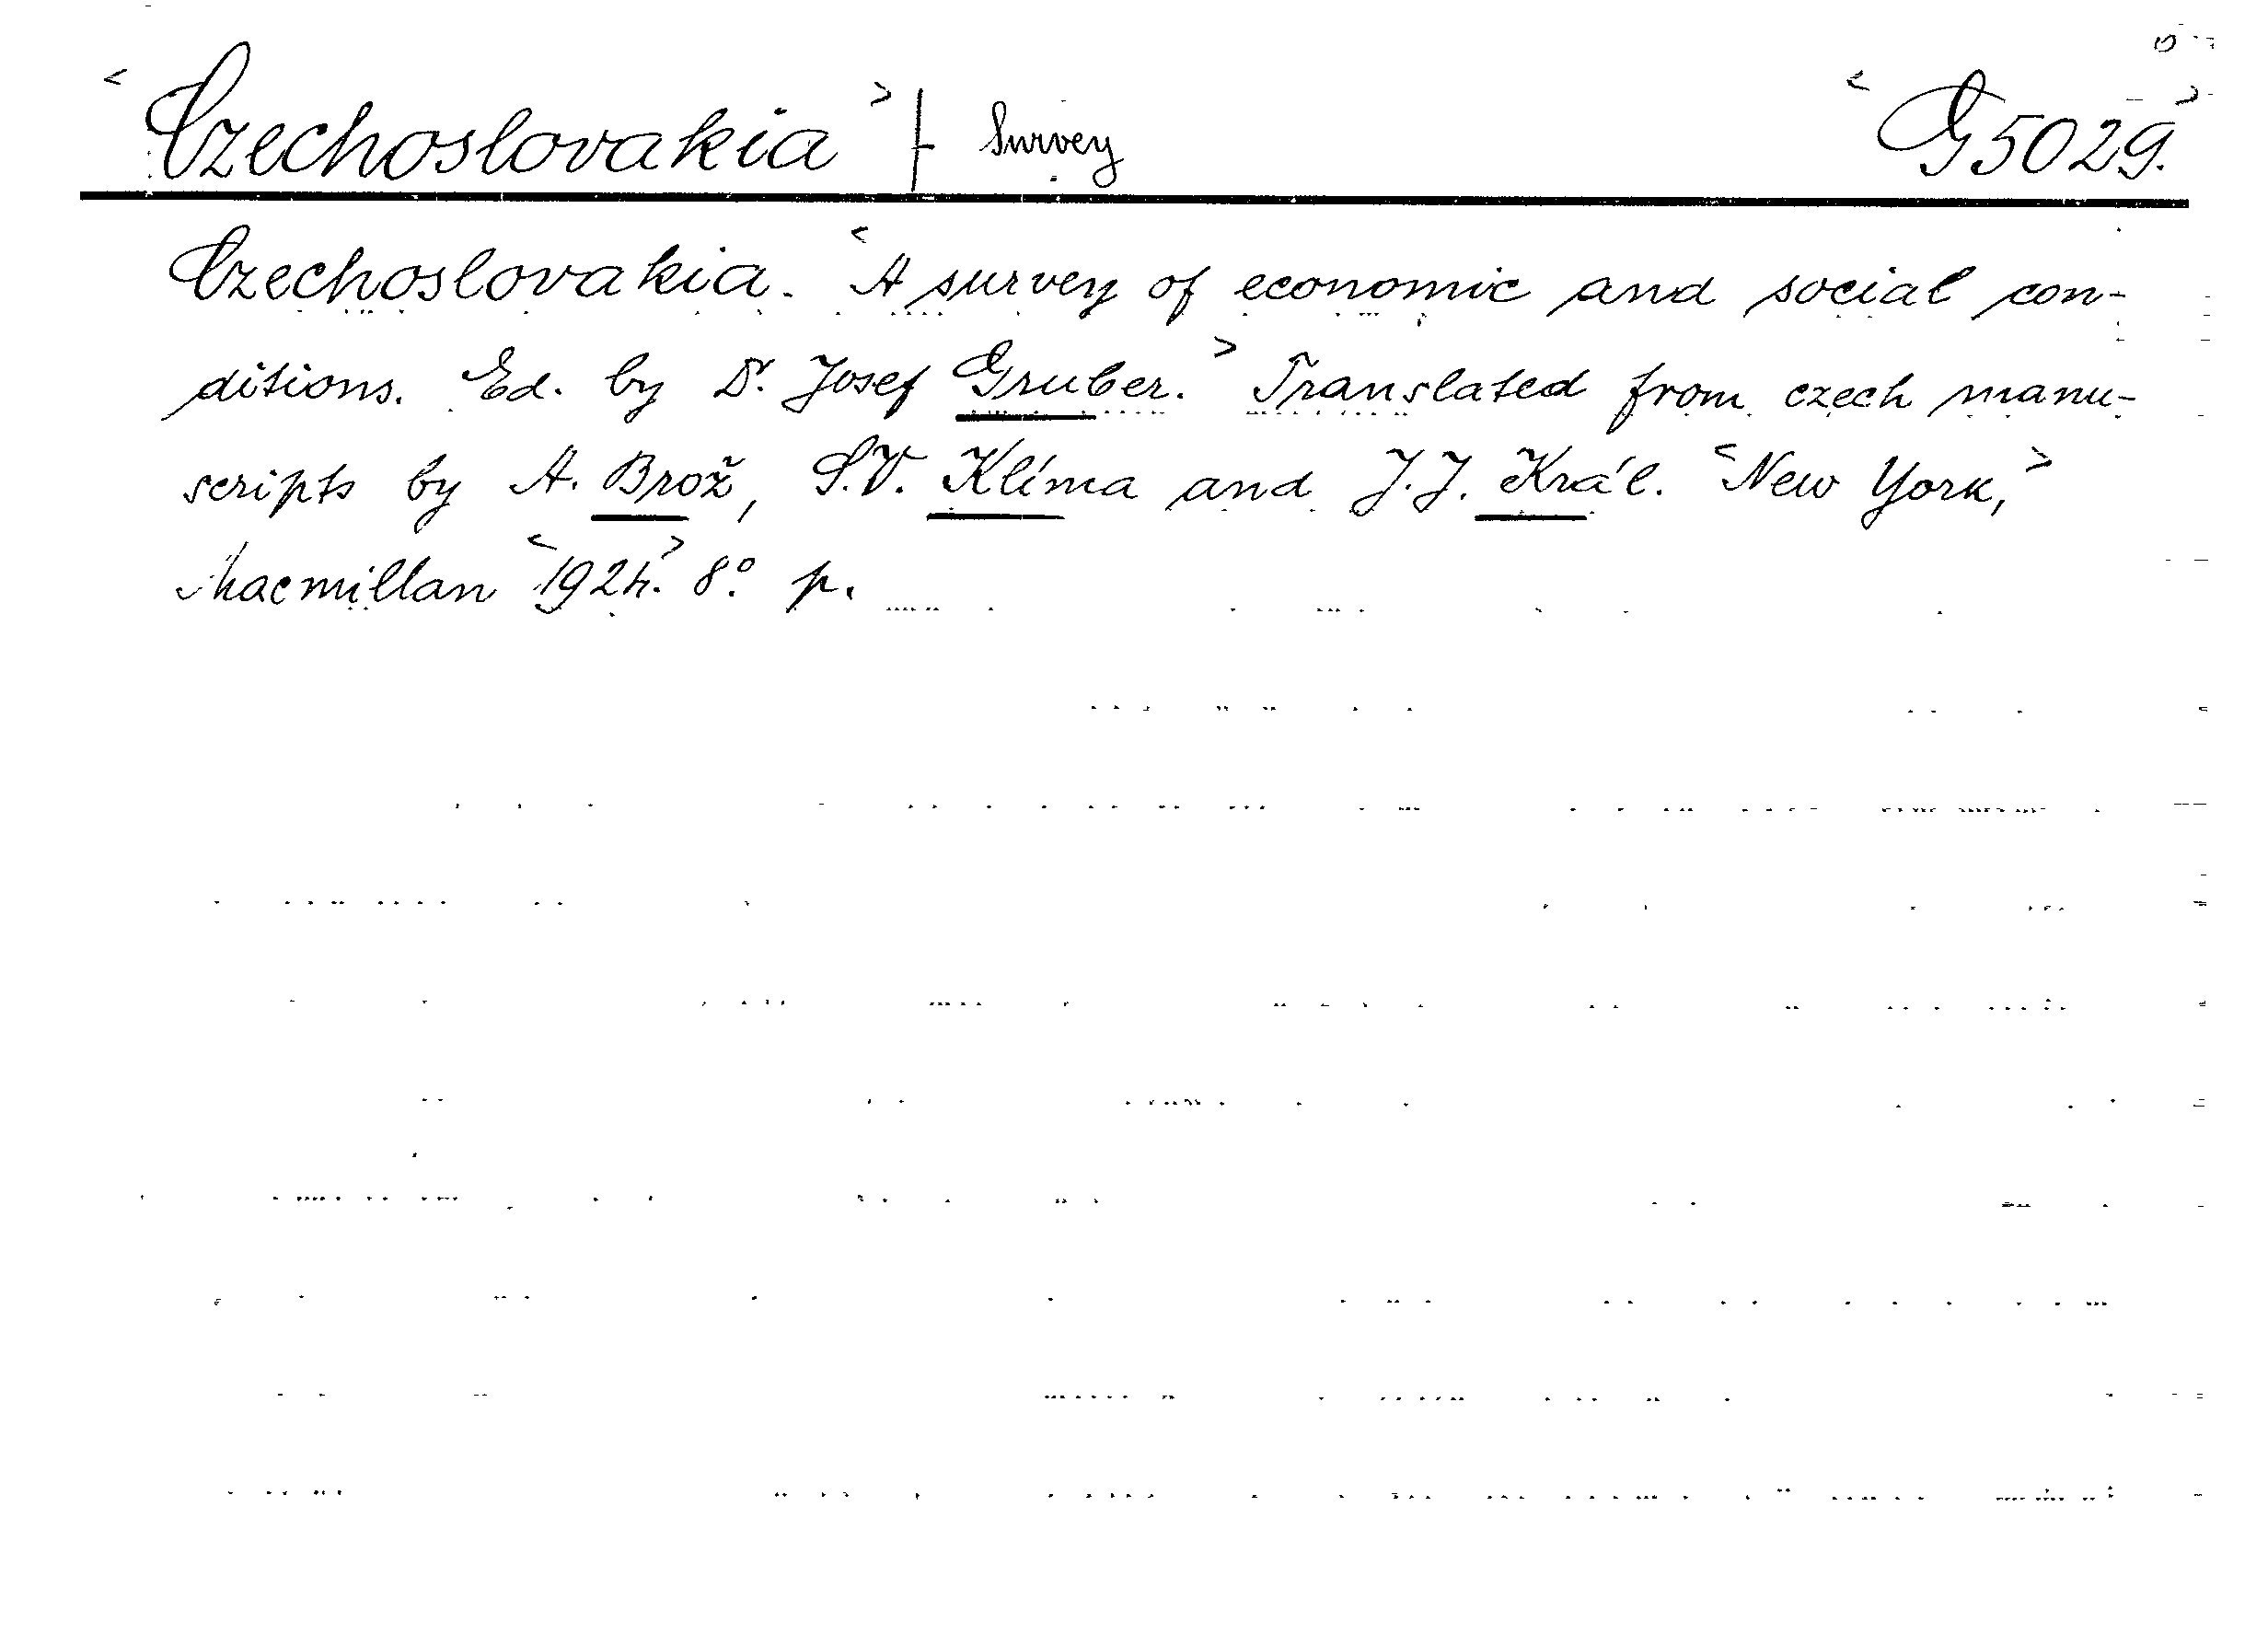 <Czechoslovakia> + Survey <G5029.>
Czechoslovakia. <A survey of economic and social con-
ditions. Ed. by Dr. Josef Gruber.> Translated from czech manu-
scripts by A. Brož, S.V. Klíma and J.J. Král. <New York,>
Macmillan <1924.> 8° p.